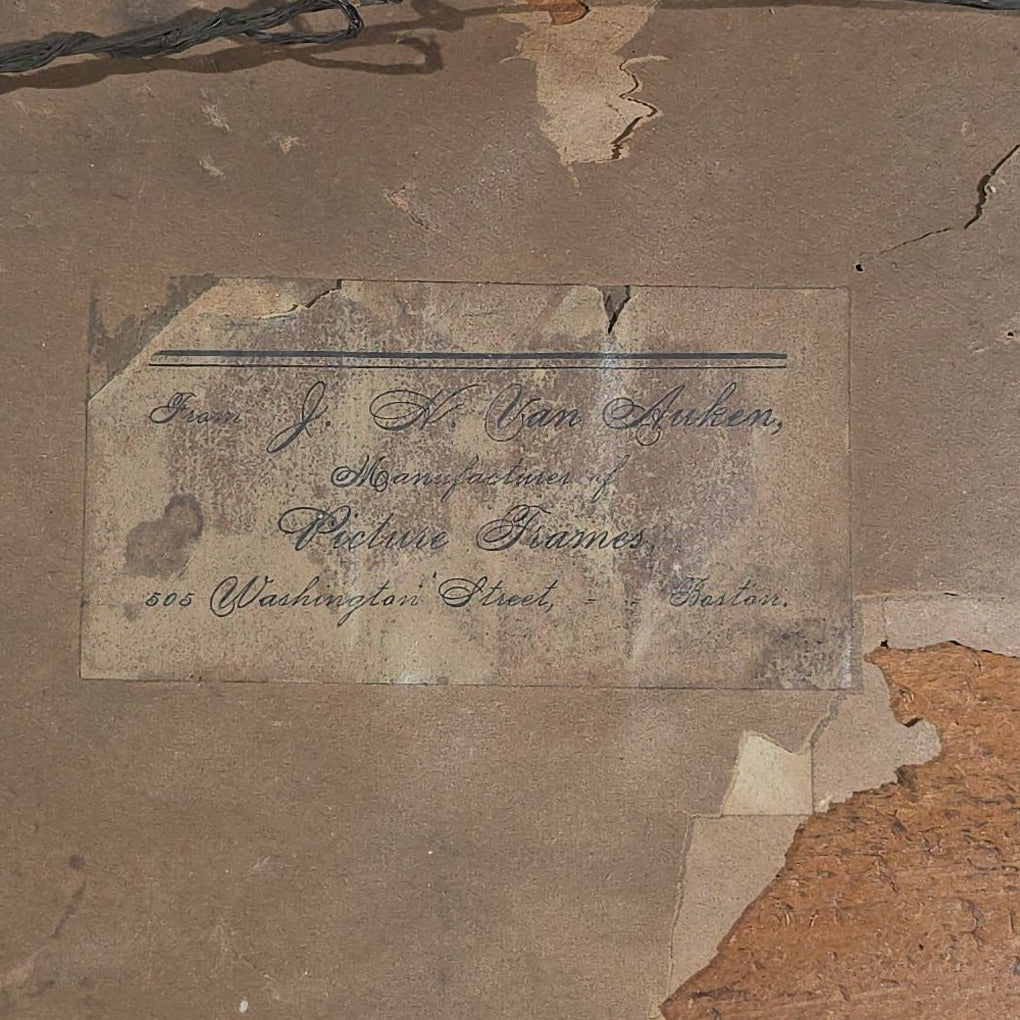 From J. N. Van Auken,
Manufacturer of
Picture Frames,
505 Washington Street, - - Boston.